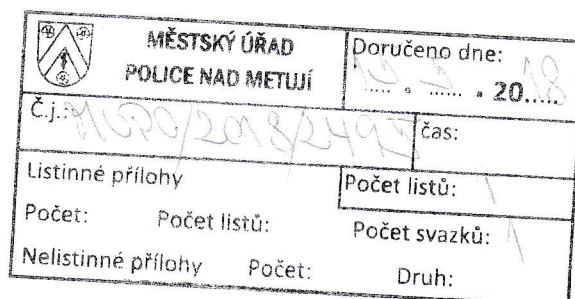 MĚSTSKÝ ÚŘAD
POLICE NAD METUJÍ
Doručeno dne:
..... . ...... . 20 18
Č.j.: MUPO/2018/2497
čas:
Listinné přílohy
Počet listů: 1
Počet: Počet listů:
Počet svazků: 1
Nelistinné přílohy Počet: Druh: